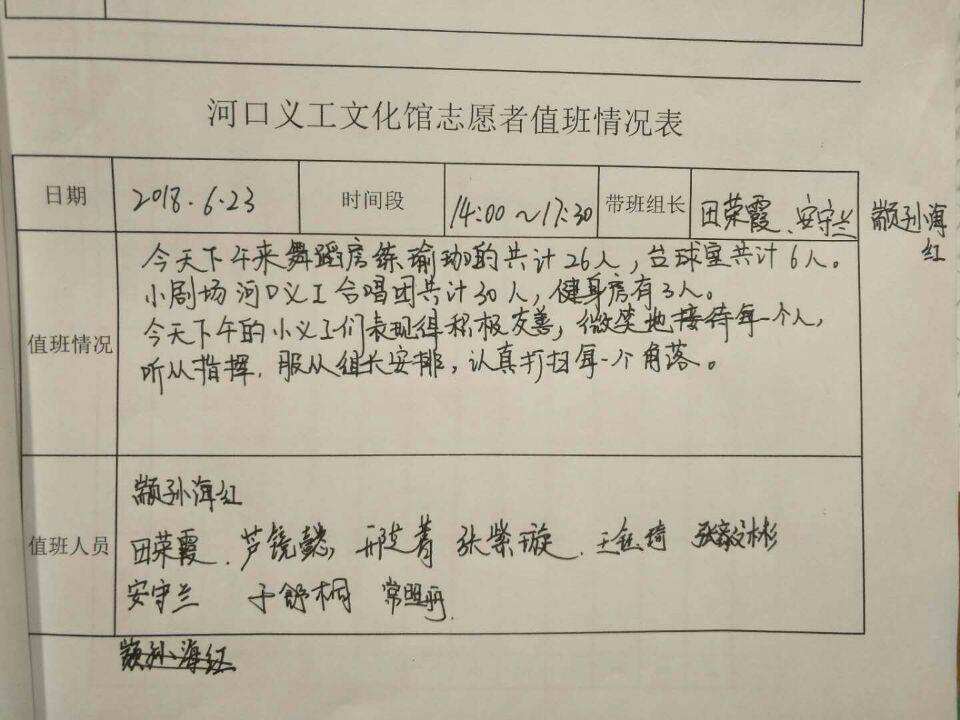 河口义工文化馆志愿者值班情况表
日期 2018.6.23 时间段 14:00~17:30 带班组长 田荣霞、安守兰 颛孙海红
值班情况
今天下午来舞蹈房练瑜珈的共计26人,台球室共计6人。
小剧场河口义工合唱团共计30人,健身房有3人。
今天下午的小义工们表现组积极友善,微笑地接待每一个人,
听从指挥.服从组长安排,认真打扫每一个角落。
值班人员
颛孙海红
田荣霞.芦镜懿,邢芝菁 张紫璇.王钰琦
安守兰 于舒桐 常盟丹.
颛孙海红